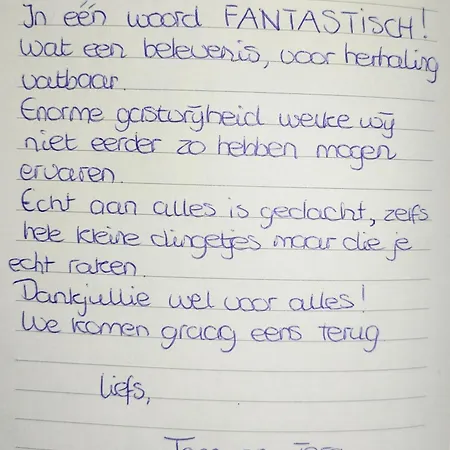 In één woord FANTASTISCH!
Wat een belevenis, voor herhaling
vatbaar.
Enorme gastvrijheid welke wij
niet eerder zo hebben mogen
ervaren.
Echt aan alles is gedacht, zelfs
hele kleine dingetjes maar die je
echt raken.
Dankjullie wel voor alles!
We komen graag eens terug
Liefs,